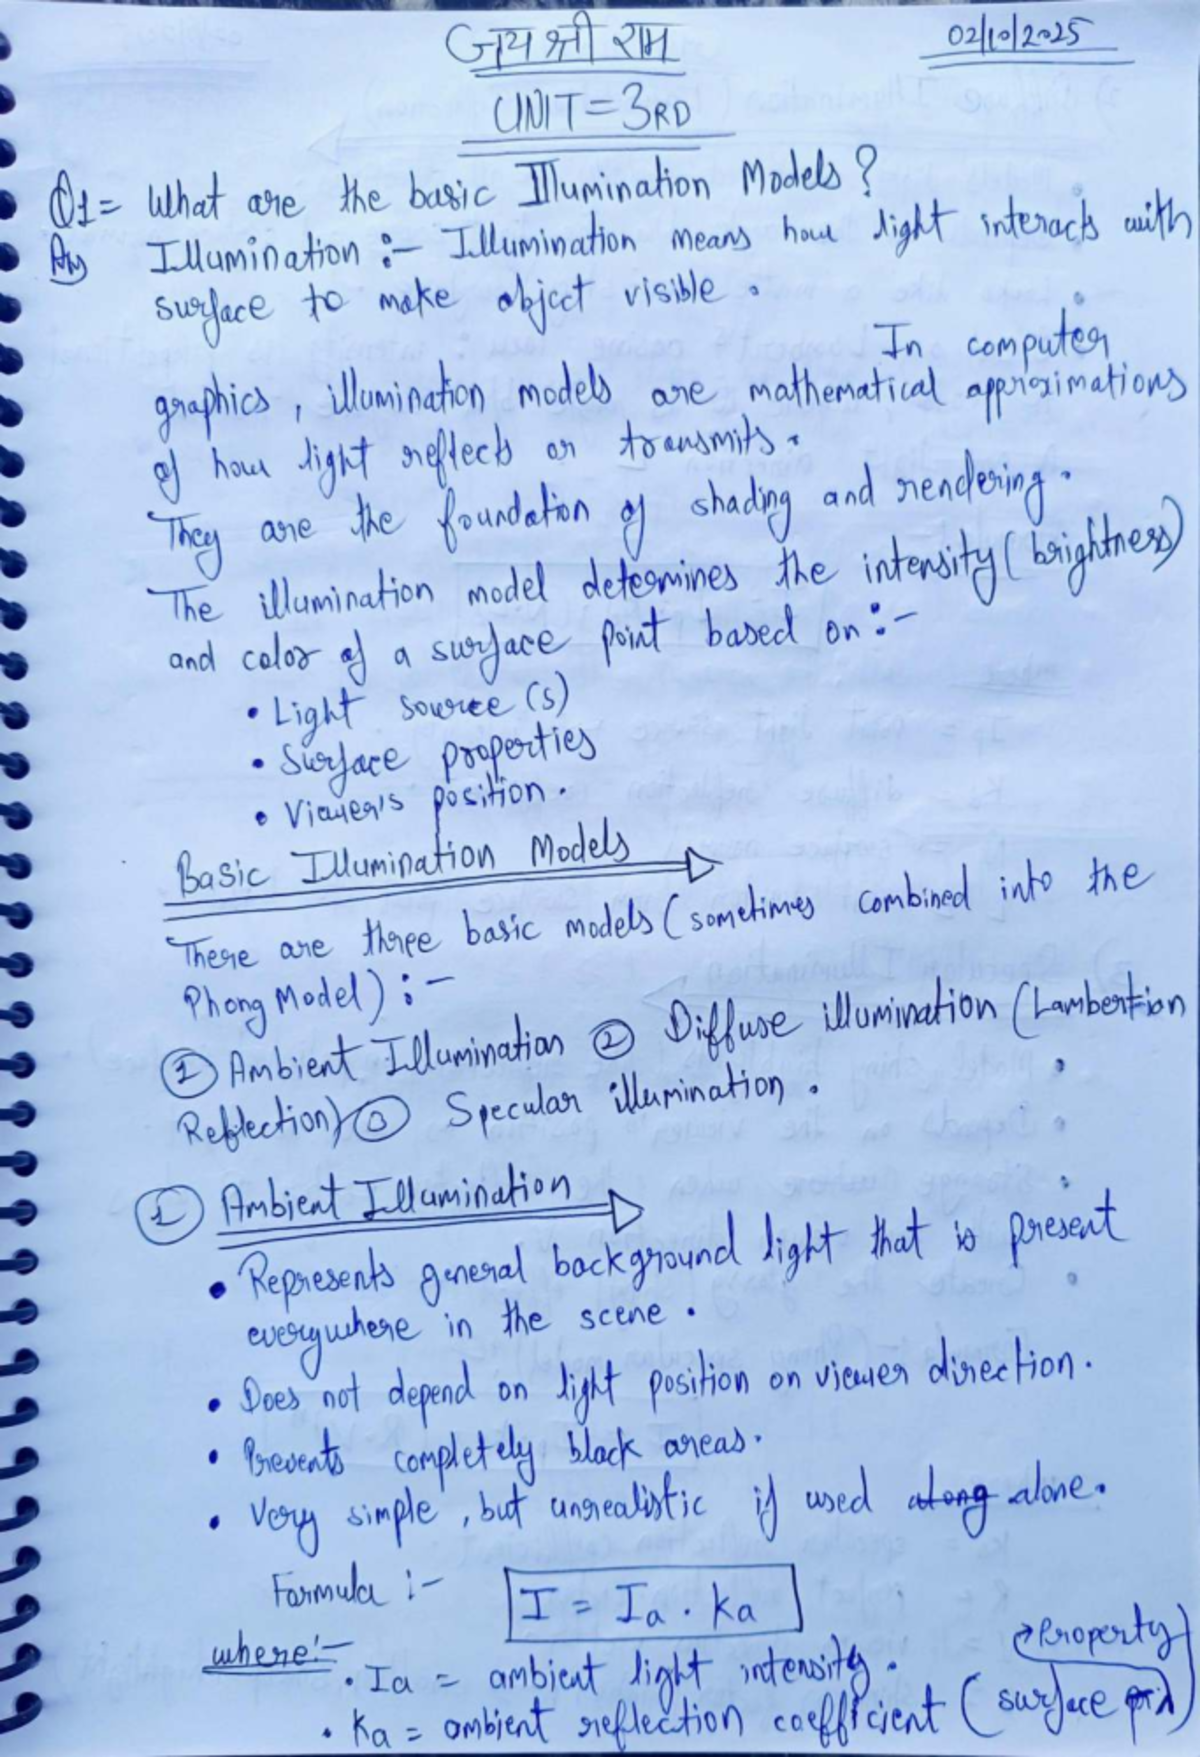 जय श्री राम
02/10/2025
UNIT = 3RD
Q1 = What are the basic Illumination Models ?
Ans Illumination :- Illumination means how light interacts with
surface to make object visible .
In computer
graphics , illumination models are mathematical approximations
of how light reflects or transmits .
They are the foundation of shading and rendering .
The illumination model determines the intensity ( brightness )
and color of a surface point based on :-
• Light source (s)
• Surface properties
• Viewer's position .
Basic Illumination Models
There are three basic models ( sometimes combined into the
Phong Model ) :-
① Ambient Illumination ② Diffuse illumination ( Lambertion
Reflection) ③ Specular illumination .
① Ambient Illumination
• Represents general background light that is present
everywhere in the scene .
• Does not depend on light position on viewer direction .
• Prevents completely black areas .
• Very simple , but unrealistic if used along alone .
Formula :- I = Ia . Ka
where :-
• Ia = ambient light intensity .
→ Property
• Ka = ambient reflection coefficient ( surface